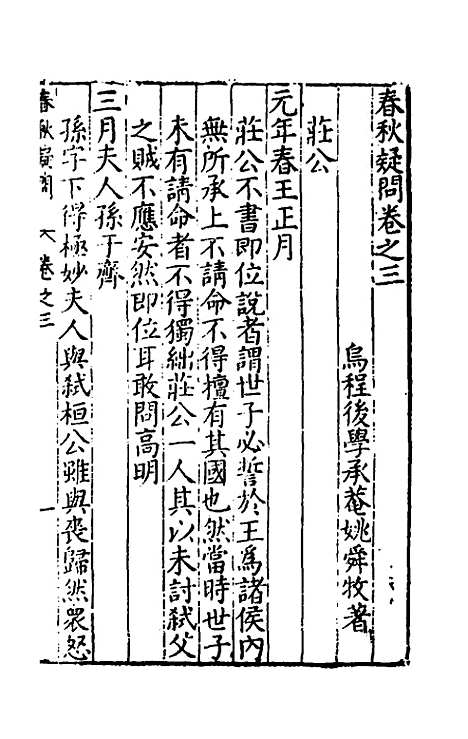 春秋疑問卷之三
烏程後學承菴姚舜牧著
莊公
元年春王正月
莊公不書即位說者謂世子必誓於王爲諸侯内
無所承上不請命不得擅有其國也然當時世子
未有請命者不得獨絀莊公一人其以未討弑父
之賊不應安然即位耳敢問高明
三月夫人孫于齊
孫字下得極妙夫人與弑桓公雖與喪歸然衆怒
春秋疑問 卷之三 一